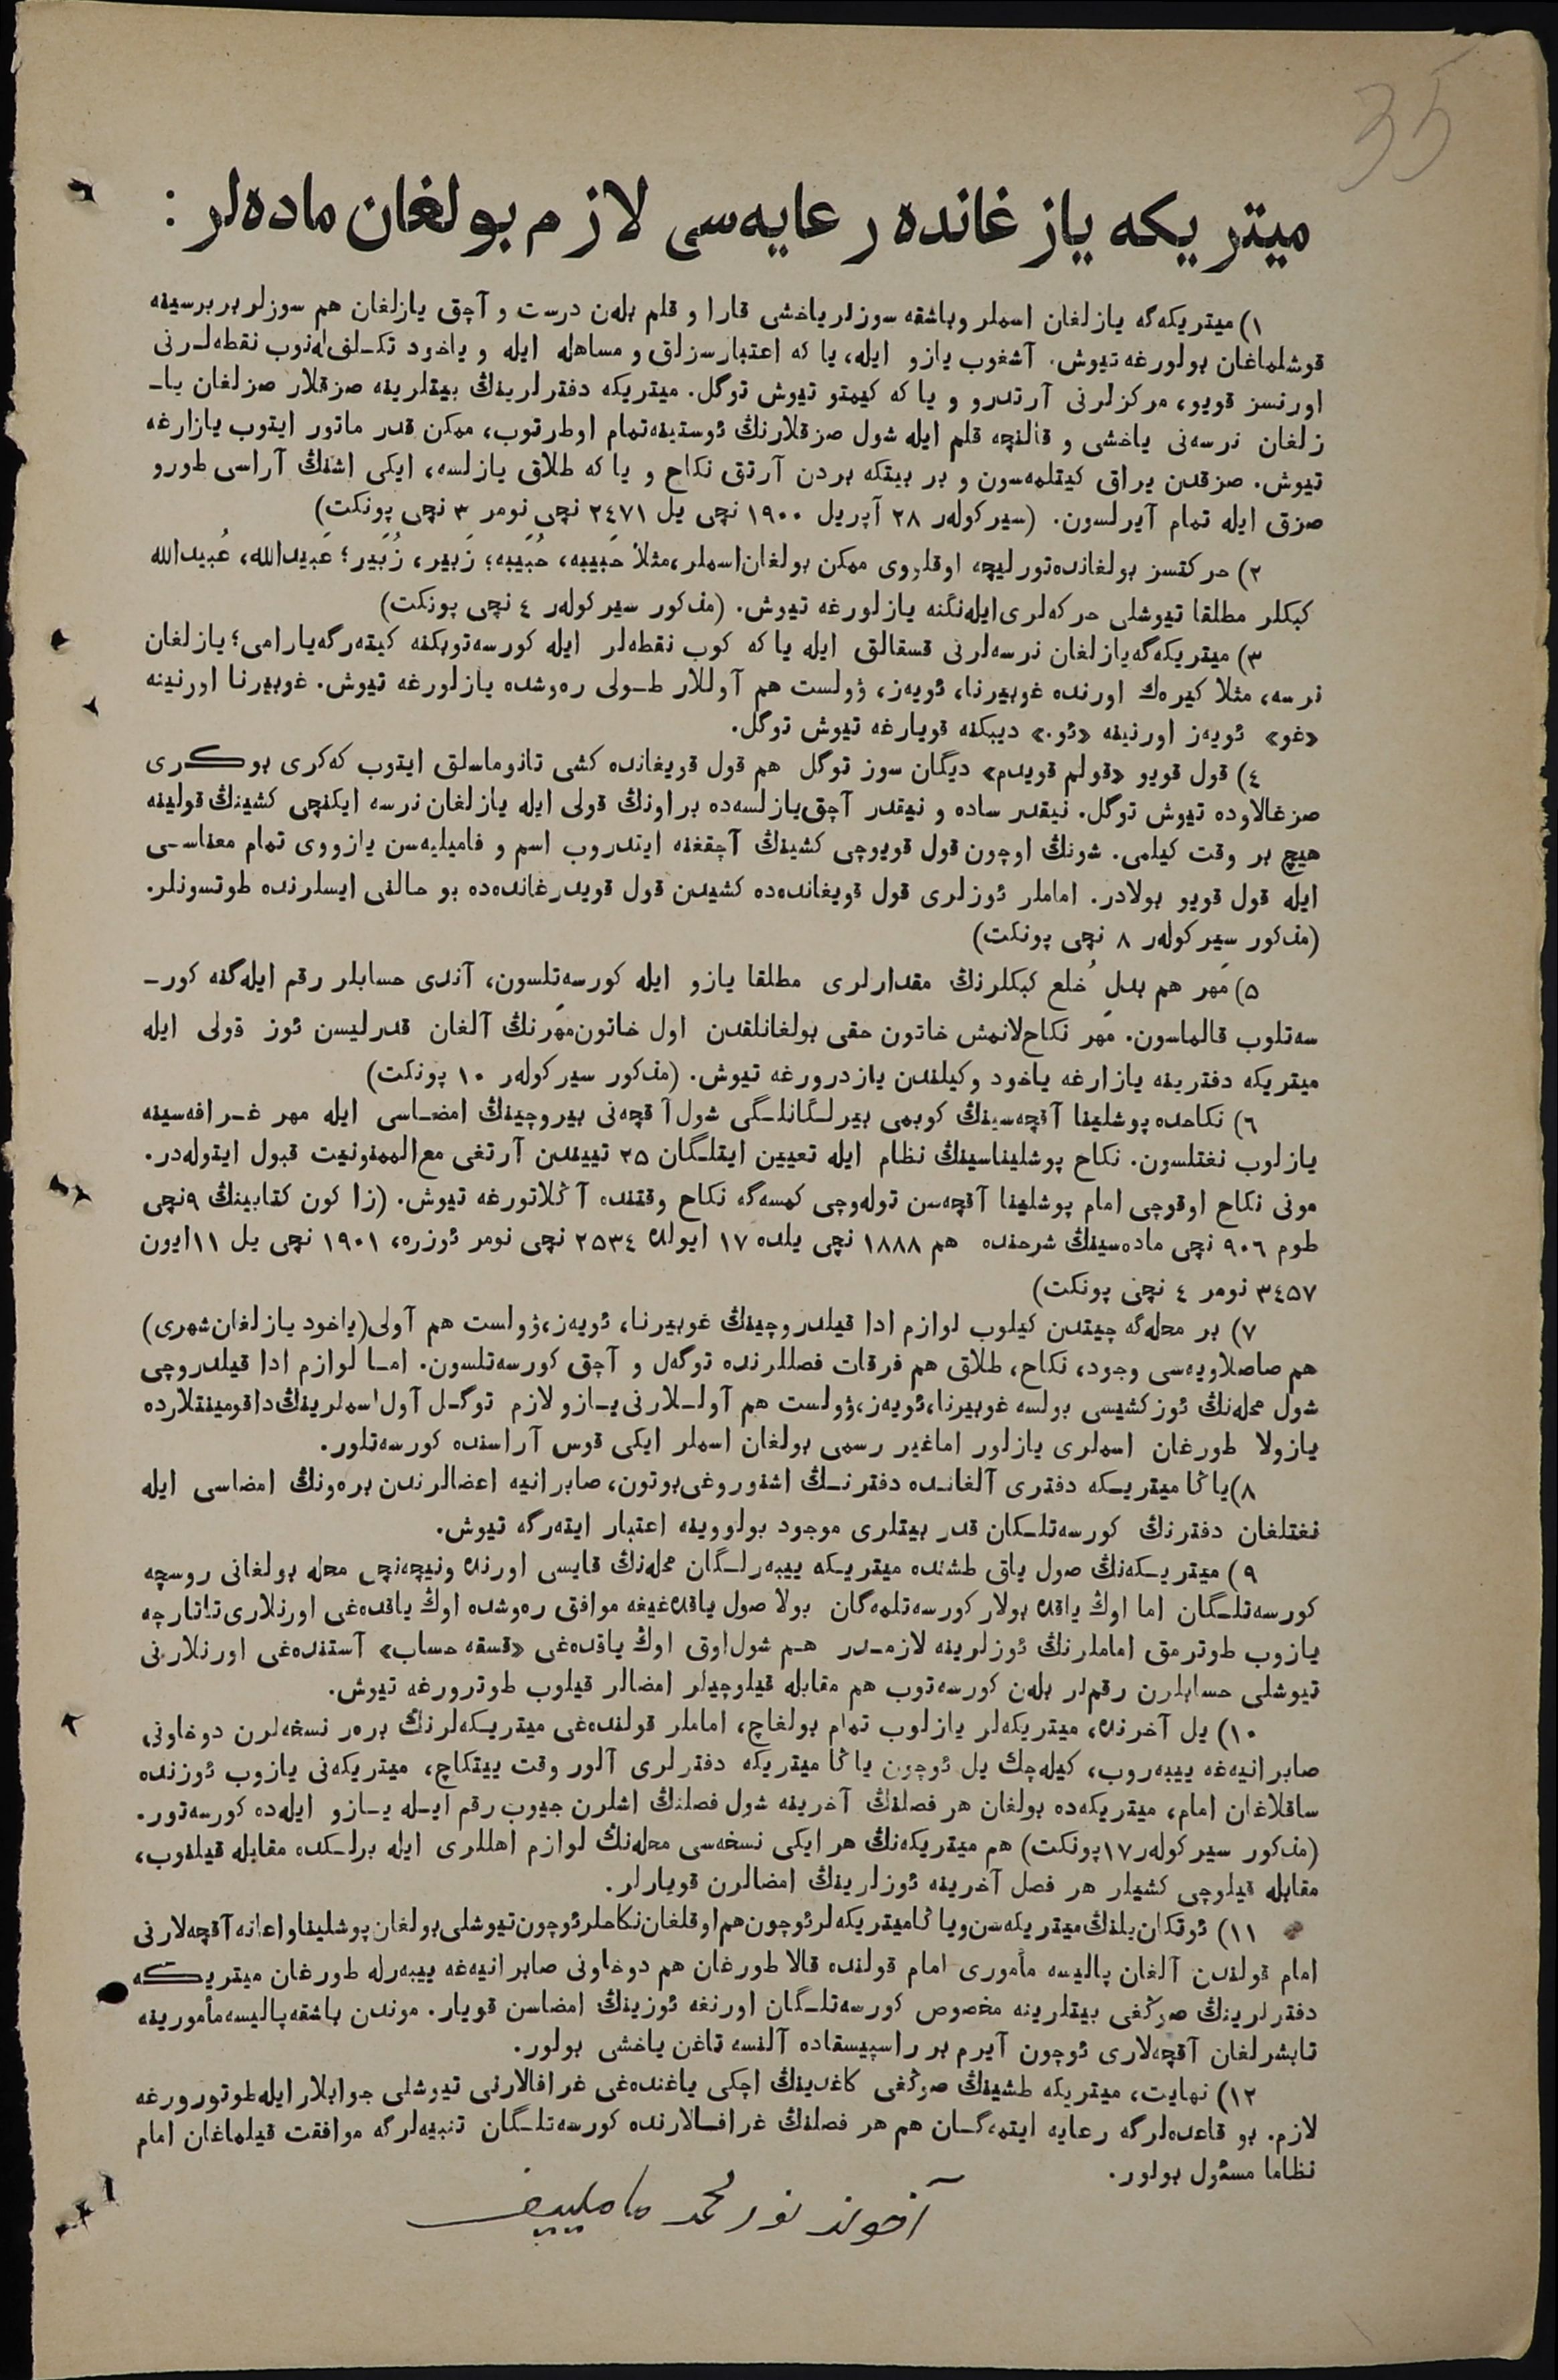 35
ميتريكه يازغانده رعايه‌سى لازم بولغان ماده‌لر :
١) ميتريكه‌گه يازلغان اسملر وباشقه سوزلر ياخشى قارا و قلم بله‌ن درست و آچق يازلغان هم سوزلر بر برسينه
قوشلماغان بولورغه تيوش. آشغوب يازو ايله، يا كه اعتبارسزلق و مساهله ايله و ياخود تكـلف له‌نوب نقطه‌لـرنى
اورنسز قويو، مركزلرنى آرتدرو و يا كه كيمتو تيوش توگل. ميتريكه دفترلرينڭ بيتلرينه صزقلار صزلغان ياـ
زلغان نرسه‌نى ياخشى و قالنچه قلم ايله شول صزقلارنڭ ئوستينه‌تمام اوطرتوب، ممكن قدر ماتور ايتوب يازارغه
تيوش. صزقدن يراق كيتلمه‌سون و بر بيتكه بردن آرتق نكاح و يا كه طلاق يازلسه، ايكى اشنڭ آراسى طورو
صزق ايله تمام آيرلسون. (سيركوله‌ر ٢٨ آپريل ١٩٠٠ نچى يل ٢٤٧١ نچى نومر ٣ نچى پونكت)
٢) حركتسز بولغانده‌تورليچه اوقلووى ممكن بولغان‌اسملر،مثلا حَبيبه، حُبَيبه؛ زَبير، زُبَير؛ عَبيدالله، عُبيدالله
كبكلر مطلقا تيوشلى حركه‌لرى‌ايله‌نگنه يازلورغه تيوش. (مذكور سيركوله‌ر ٤ نچى پونكت)
٣) ميتريكه‌گه‌يازلغان نرسه‌لرنى قسقالق ايله يا كه كوب نقطه‌لر ايله كورسه‌توبكنه كيته‌رگه‌يارامى؛ يازلغان
نرسه، مثلا كيره‌ك اورنده غوبيرنا، ئويه‌ز، ۋولست هم آوللار طـولى ره‌وشده يازلورغه تيوش. غوبيرنا اورنينه
«غو» ئويه‌ز اورنينه «ئو.» ديبكنه قويارغه تيوش توگل.
٤) قول قويو «قولم قويدم» ديگان سوز توگل هم قول قويغانده كشى تانوماسلق ايتوب كه‌كرى بوكـرى
صزغالاوده تيوش توگل. نيقدر ساده و نيقدر آچق‌يازلسه‌ده براونڭ قولى ايله يازلغان نرسه ايكنچى كشينڭ قولينه
هيچ بر وقت كيلمى. شونڭ اوچون قول قويوچى كشينڭ آچقغنه ايتدروب اسم و فاميليه‌سن يازووى تمام معناسـى
ايله قول قويو بولادر. اماملر ئوزلرى قول قويغانده‌ده كشيدن قول قويدرغانده‌ده بو حالنى ايسلرنده طوتسونلر.
(مذكور سيركوله‌ر ٨ نچى پونكت)
٥) مَهر هم بدلِ خُلع كبكلرنڭ مقدارلرى مطلقا يازو ايله كورسه‌تلسون، آندى حسابلر رقم ايله‌گنه كورـ
سه‌تلوب قالماسون. مَهر نكاح‌لانمش خاتون حقى بولغانلقدن اول خاتون‌مَهرنڭ آلغان قدرليسن ئوز قولى ايله
ميتريكه دفترينه يازارغه ياخود وكيلندن يازدرورغه تيوش. (مذكور سيركوله‌ر ١٠ پونكت)
٦) نكاحده پوشلينا آقچه‌سينڭ كوبمى بيرلـگانلـگى شول آقچه‌نى بيروچينڭ امضـاسى ايله مهر غـرافه‌سينه
يازلوب نغتلسون. نكاح پوشليناسينڭ نظام ايله تعيين ايتلـگان ٢٥ تييندن آرتغى مع‌الممنونيت قبول ايتوله‌در.
مونى نكاح اوقوچى امام پوشلينا آقچه‌سن توله‌وچى كمسه‌گه نكاح وقتنده آڭلاتورغه تيوش. (زاكون كتابينڭ ٩نچى
طوم ٩٠٦ نچى ماده‌سينڭ شرحنده هم ١٨٨٨ نچى يلده ١٧ ايولده ٢٥٣٤ نچى نومر ئوزره، ١٩٠١ نچى يل ١١ايون
٣٤٥٧ نومر ٤ نچى پونكت)
٧) بر محله‌گه چيتدن كيلوب لوازم ادا قيلدروچينڭ غوبيرنا، ئويه‌ز،ۋولست هم آولى(ياخود يازلغان‌شهرى)
هم صاصلاويه‌سى وجود، نكاح، طلاق هم فرقات فصللرنده توگه‌ل و آچق كورسه‌تلسون. امـا لوازم ادا قيلدروچى
شول محله‌نڭ ئوزكشيسى بولسه غوبيرنا،ئويه‌ز،ۋولست هم آولـلارنى يـازو لازم توگـل آول‌اسملرينڭ‌داقومينتلارده
يازولا طورغان اسملرى يازلور اماغير رسمى بولغان اسملر ايكى قوس آراسنده كورسه‌تلور.
٨)ياڭا ميتريـكه دفترى آلغانـده دفترنـڭ اشنوروغى‌بوتون، صابرانيه اعضالرندن بره‌ونڭ امضاسى ايله
نغتلغان دفترنڭ كورسه‌تلـكان قدر بيتلرى موجود بولووينه اعتبار ايته‌رگه تيوش.
٩) ميتريـكه‌نڭ صول ياق طشنده ميتريـكه ييبه‌رلـگان محله‌نڭ قايسى اورنده ونيچه‌نچى محله بولغانى روسچه
كورسه‌تلـگان اما اوڭ ياقده بولار كورسه‌تلمه‌گان بولا صول ياقده‌غيغه موافق ره‌وشده اوڭ ياقده‌غى اورنلارى‌تاتارچه
يازوب طوترمق اماملرنڭ ئوزلرينه لازمـدر هـم شول‌اوق اوڭ ياقده‌غى «قسقه حساب» آستنده‌غى اورنلارنى
تيوشلى حسابلرن رقملر بله‌ن كورسه‌توب هم مقابله قيلوچيلر امضالر قيلوب طوترورغه تيوش.
١٠) يل آخرنده، ميتريكه‌لر يازلوب تمام بولغاچ، اماملر قولنده‌غى ميتريـكه‌لرنڭ بره‌ر نسخه‌لرن دوخاونى
صابرانيه‌غه ييبه‌روب، كيله‌چك يل ئوچون ياڭا ميتريكه دفترلرى آلور وقت ييتكاچ، ميتريكه‌نى يازوب ئوزنده
ساقلاغان امام، ميتريكه‌ده بولغان هر فصلنڭ آخرينه شول فصلنڭ اشلرن جيوب رقم ايـله يـازو ايله‌ده كورسه‌تور.
(مذكور سيركوله‌ر١٧پونكت) هم ميتريكه‌نڭ هر ايكى نسخه‌سى محله‌نڭ لوازم اهللرى ايله برلـكده مقابله قيلنوب،
مقابله قيلوچى كشيلر هر فصل آخرينه ئوزلرينڭ امضالرن قويارلر.
١١) ئوتكان‌يلنڭ‌ميتريكه‌سن‌وياڭاميتريكه‌لرئوچون‌هم‌اوقلغان‌نكاحلرئوچون‌تيوشلى‌بولغان‌پوشليناواعانه‌آقچه‌لارنى
امام قولندن آلغان پاليسه مأمورى امام قولنده قالا طورغان هم دوخاونى صابرانيه‌غه ييبه‌رله طورغان ميتريـكه
دفترلرينڭ صوڭغى بيتلرينه مخصوص كورسه‌تلـگان اورنغه ئوزينڭ امضاسن قويار. موندن باشقه‌پاليسه‌مأمورينه
تابشرلغان آقچه‌لارى ئوچون آيرم بر راسپيسقاده آلنسه تاغن ياخشى بولور.
١٢) نهايت، ميتريكه طشينڭ صوڭغى كاغدينڭ اچكى ياغنده‌غى غرافالارنى تيوشلى جوابلار ايله‌طوتورورغه
لازم. بو قاعده‌لرگه رعايه ايتمه‌گـان هم هر فصلنڭ غرافـالارنده كورسه‌تلـگان تنبيه‌لرگه موافقت قيلماغان امام
نظاما مسئول بولور.
آخوند نورمحمد مامليیف